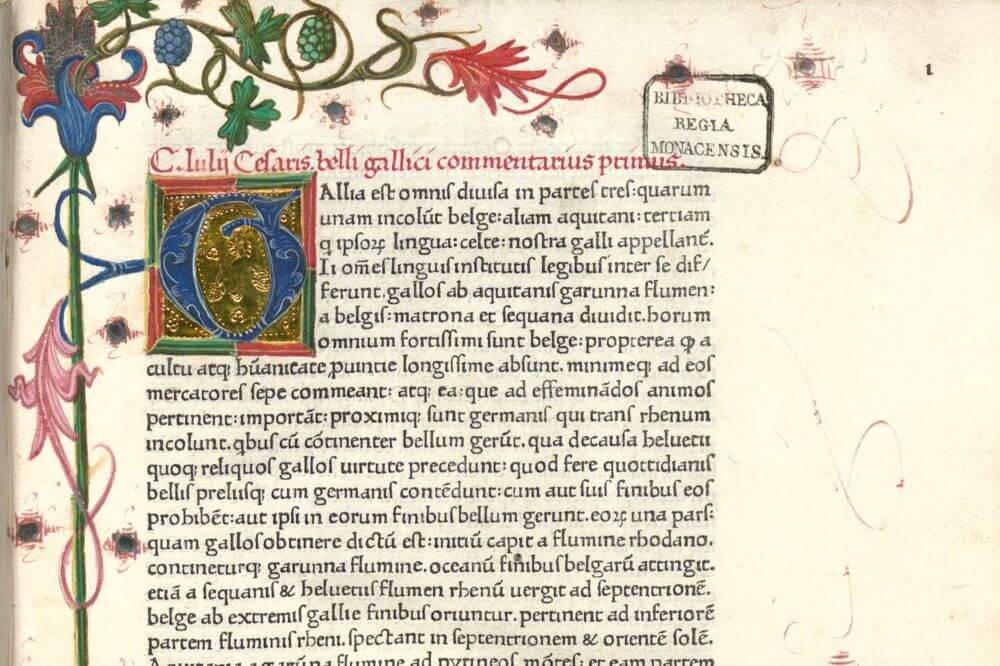 1
BIBLIOTHECA
REGIA
MONACENSIS.
C. Iulij Cesaris. belli gallici commentarius primus.
GAllia est omnis diuisa in partes tres: quarum
unam incolūt belge: aliam aquitani: tertiam
q ipsoꝝ lingua: celte: nostra galli appellant̄.
Ii om̄es linguis institutis legibus inter se dif/
ferunt. gallos ab aquitanis garunna flumen:
a belgis: matrona et sequana diuidit. horum
omnium fortissimi sunt belge: propterea ꝙ a
cultu atq; hūanitate ꝓuintie longissime absunt. minimeq; ad eos
mercatores sepe commeant: atq; ea: que ad effeminādos animos
pertinent: important̄: proximiq; sunt germanis qui trans rhenum
incolunt. qbus cū cōtinenter bellum gerūt. qua de causa heluetii
quoq; reliquos gallos uirtute precedunt: quod fere quottidianis
bellis preliisq; cum germanis contēdunt: cum aut suis finibus eos
prohibēt: aut ipsi in eorum finibus bellum gerunt. eoꝝ una pars:
quam gallos obtinere dictū est: initiū capit a flumine rhodano.
contineturq; garunna flumine. oceanū finibus belgarū attingit.
etiā a sequanis & heluetiis flumen rhenū uergit ad septentrionē.
belge ab extremis gallie finibus oriuntur. pertinent ad inferiorē
partem fluminis rheni. spectant in septentrionem & orientē solē.
Aquitania a garūna flumine ad pyrineos mōtes: et eam partem